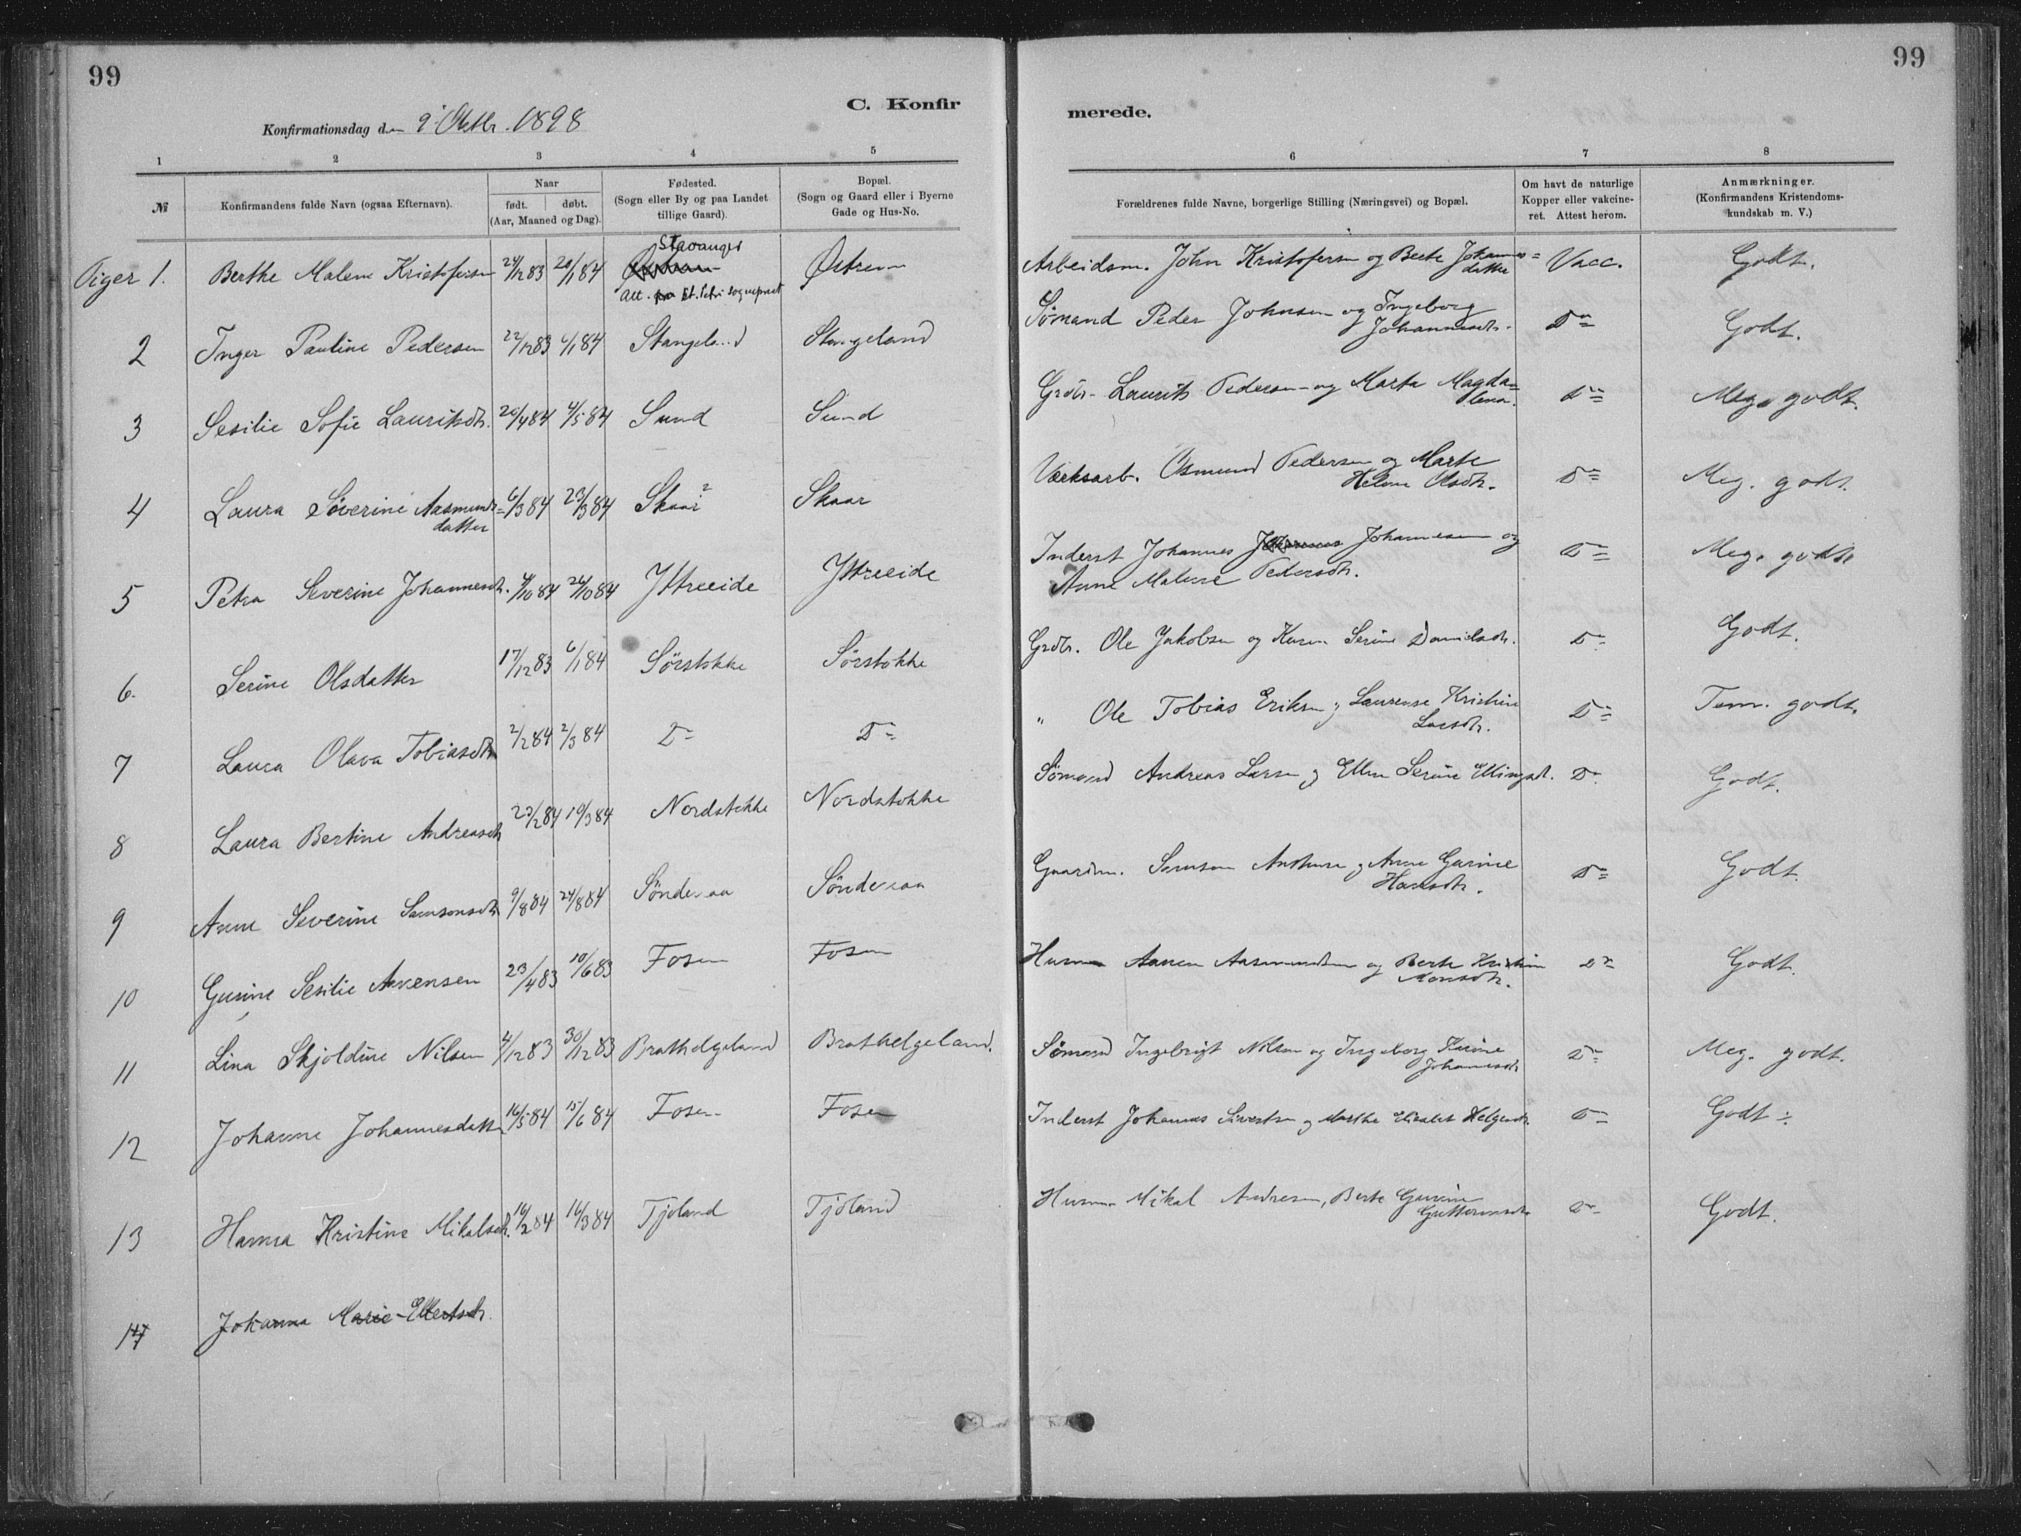 99
99
C. Konfir
merede.
Konfirmationsdag den 9 Oktbr. 1898
1 2 3 4 5 6 7 8
№
Konfirmandens fulde Navn (ogsaa Efternavn).
Naar
født. døbt.
(Aar, Maaned og Dag).
Fødested.
(Sogn eller By og paa Landet
tillige Gaard).
Bopæl.
(Sogn og Gaard eller i Byerne
Gade og Hus-No.
Forældrenes fulde Navne, borgerlige Stilling (Næringsvei) og Bopæl.
Om havt de naturlige
Kopper eller vakcine-
ret. Attest herom.
Anmærkninger.
(Konfirmandens Kristendoms-
kundskab m. V.)
Stavanger
Piger 1. Berthe Malene Kristofersen 24/12 83 20/1 84 Østrem Arbeidsm. John Kristofersen og Berte Johannes=
datter Vacc. Godt.
Att. St. Petri sogneprest
2 Inger Pauline Pedersen 22/12 83 6/1 84 Stangeland Stangeland Sømand Peder Johnsen og Ingeborg
Johannesdtr. Do Godt.
3 Sesilie Sofie Lauritsdtr. 20/4 84 4/5 84 Sund Sund Grdbr. Laurits Pedersen og Marta Magda=
lena. Do Meg. godt.
4 Laura Severine Aasmunds=
datter 6/3 84 23/3 84 Skaar Skaar Værksarb. Osmund Pedersen og Marte
Helene Olsdtr. Do Meg. godt.
5 Petra Severine Johannesdtr. 4/10 84 26/10 84 Ytreeide Ytreeide Inderst Johannes Johannesen og
Anne Malene Pedersdtr. Do Meg. godt
6. Serine Olsdatter 17/12 83 6/1 84 Sørstokke Sørstokke Grdbr. Ole Jakobsen og Karen Serine Danielsdtr. Do Godt.
7 Laura Olava Tobiasdtr 2/2 84 2/3 84 Do Do " Ole Tobias Eriksen og Laurense Kristine
Larsdtr. Do Tem. godt.
8 Laura Bertine Andreasdtr 23/2 84 10/3 84 Nordstokke Nordstokke Sømand Andreas Larsen og Ellen Serine Ellingsdtr. Do Godt.
9 Anne Severine Samsonsdtr 9/8 84 24/8 84 Sønderaa Sønderaa Gaardm. Samson og Anne Gurine
Hansdtr. Do Godt.
10 Gurine Sesilie Aavensen 23/4 83 10/6 83 Fosen Fosen Husm Aanen Aasmundsen og Berte Kristine
Monsdtr. Do Godt.
11 Lina Skjoldine Nilsen 4/12 83 30/12 83 Brathelgeland Brathelgeland. Sømand Ingebrigt Nilsen og Ingeborg Karine
Johannesdtr Do Meg. godt.
12 Johanne Johannesdatter 16/5 84 15/6 84 Fosen Fosen Inderst Johannes Sivertsen og Marthe Elisabet Helgesdtr. Do Godt ÷
13 Hanna Kristine Mikalsdtr. 16/2 84 16/3 84 Tjøland Tjøland Husm. Mikal Andresen, Berte Gurine
Guttormsdtr Do Godt.
14 Johanna Marie Ellertsdtr.